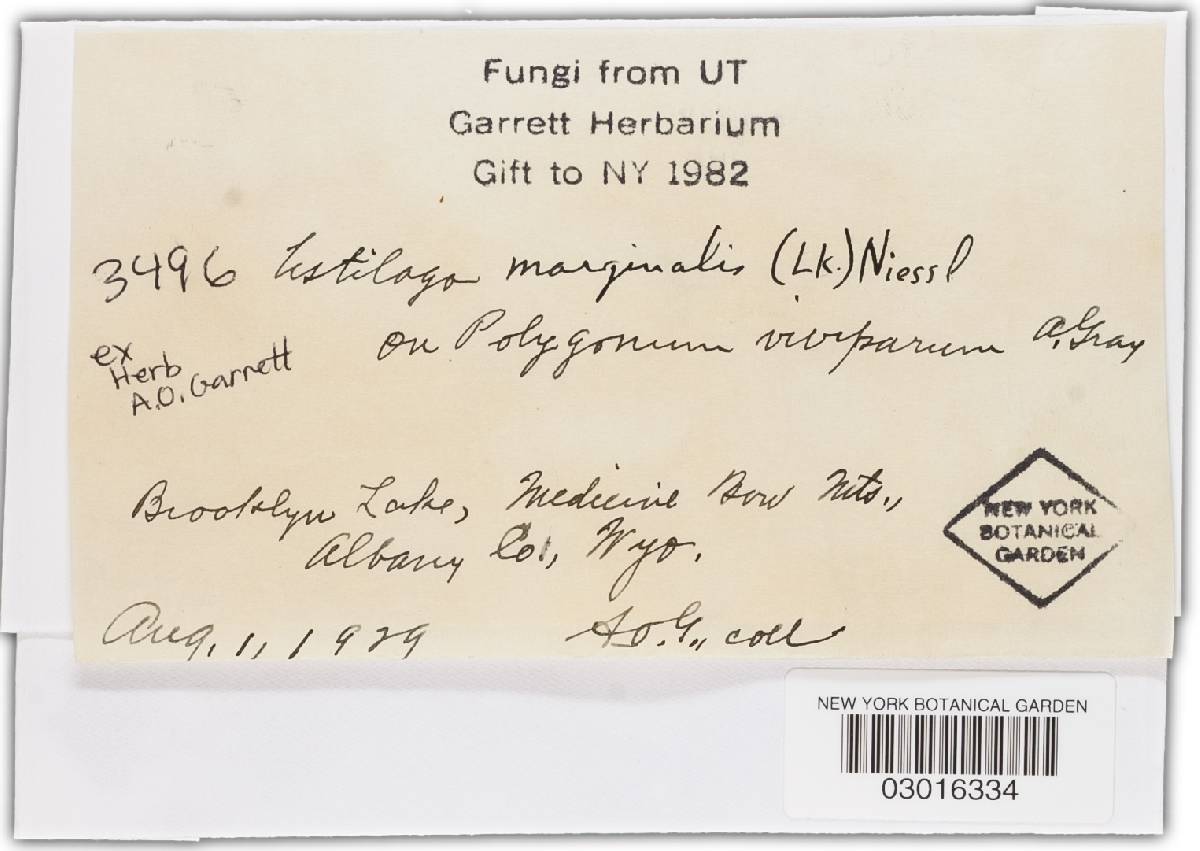 Fungi from UT
Garrett Herbarium
Gift to NY 1982
3496 Ustilago marginalis (Lk.) Niessl
on Polygonum viviparum A. Gray
ex
Herb
A.O. Garrett
Brooklyn Lake, Medicine Bow Mts.,
Albany Co., Wyo.
NEW YORK
BOTANICAL
GARDEN
Aug. 1, 1929 A.O.G., coll
NEW YORK BOTANICAL GARDEN
03016334